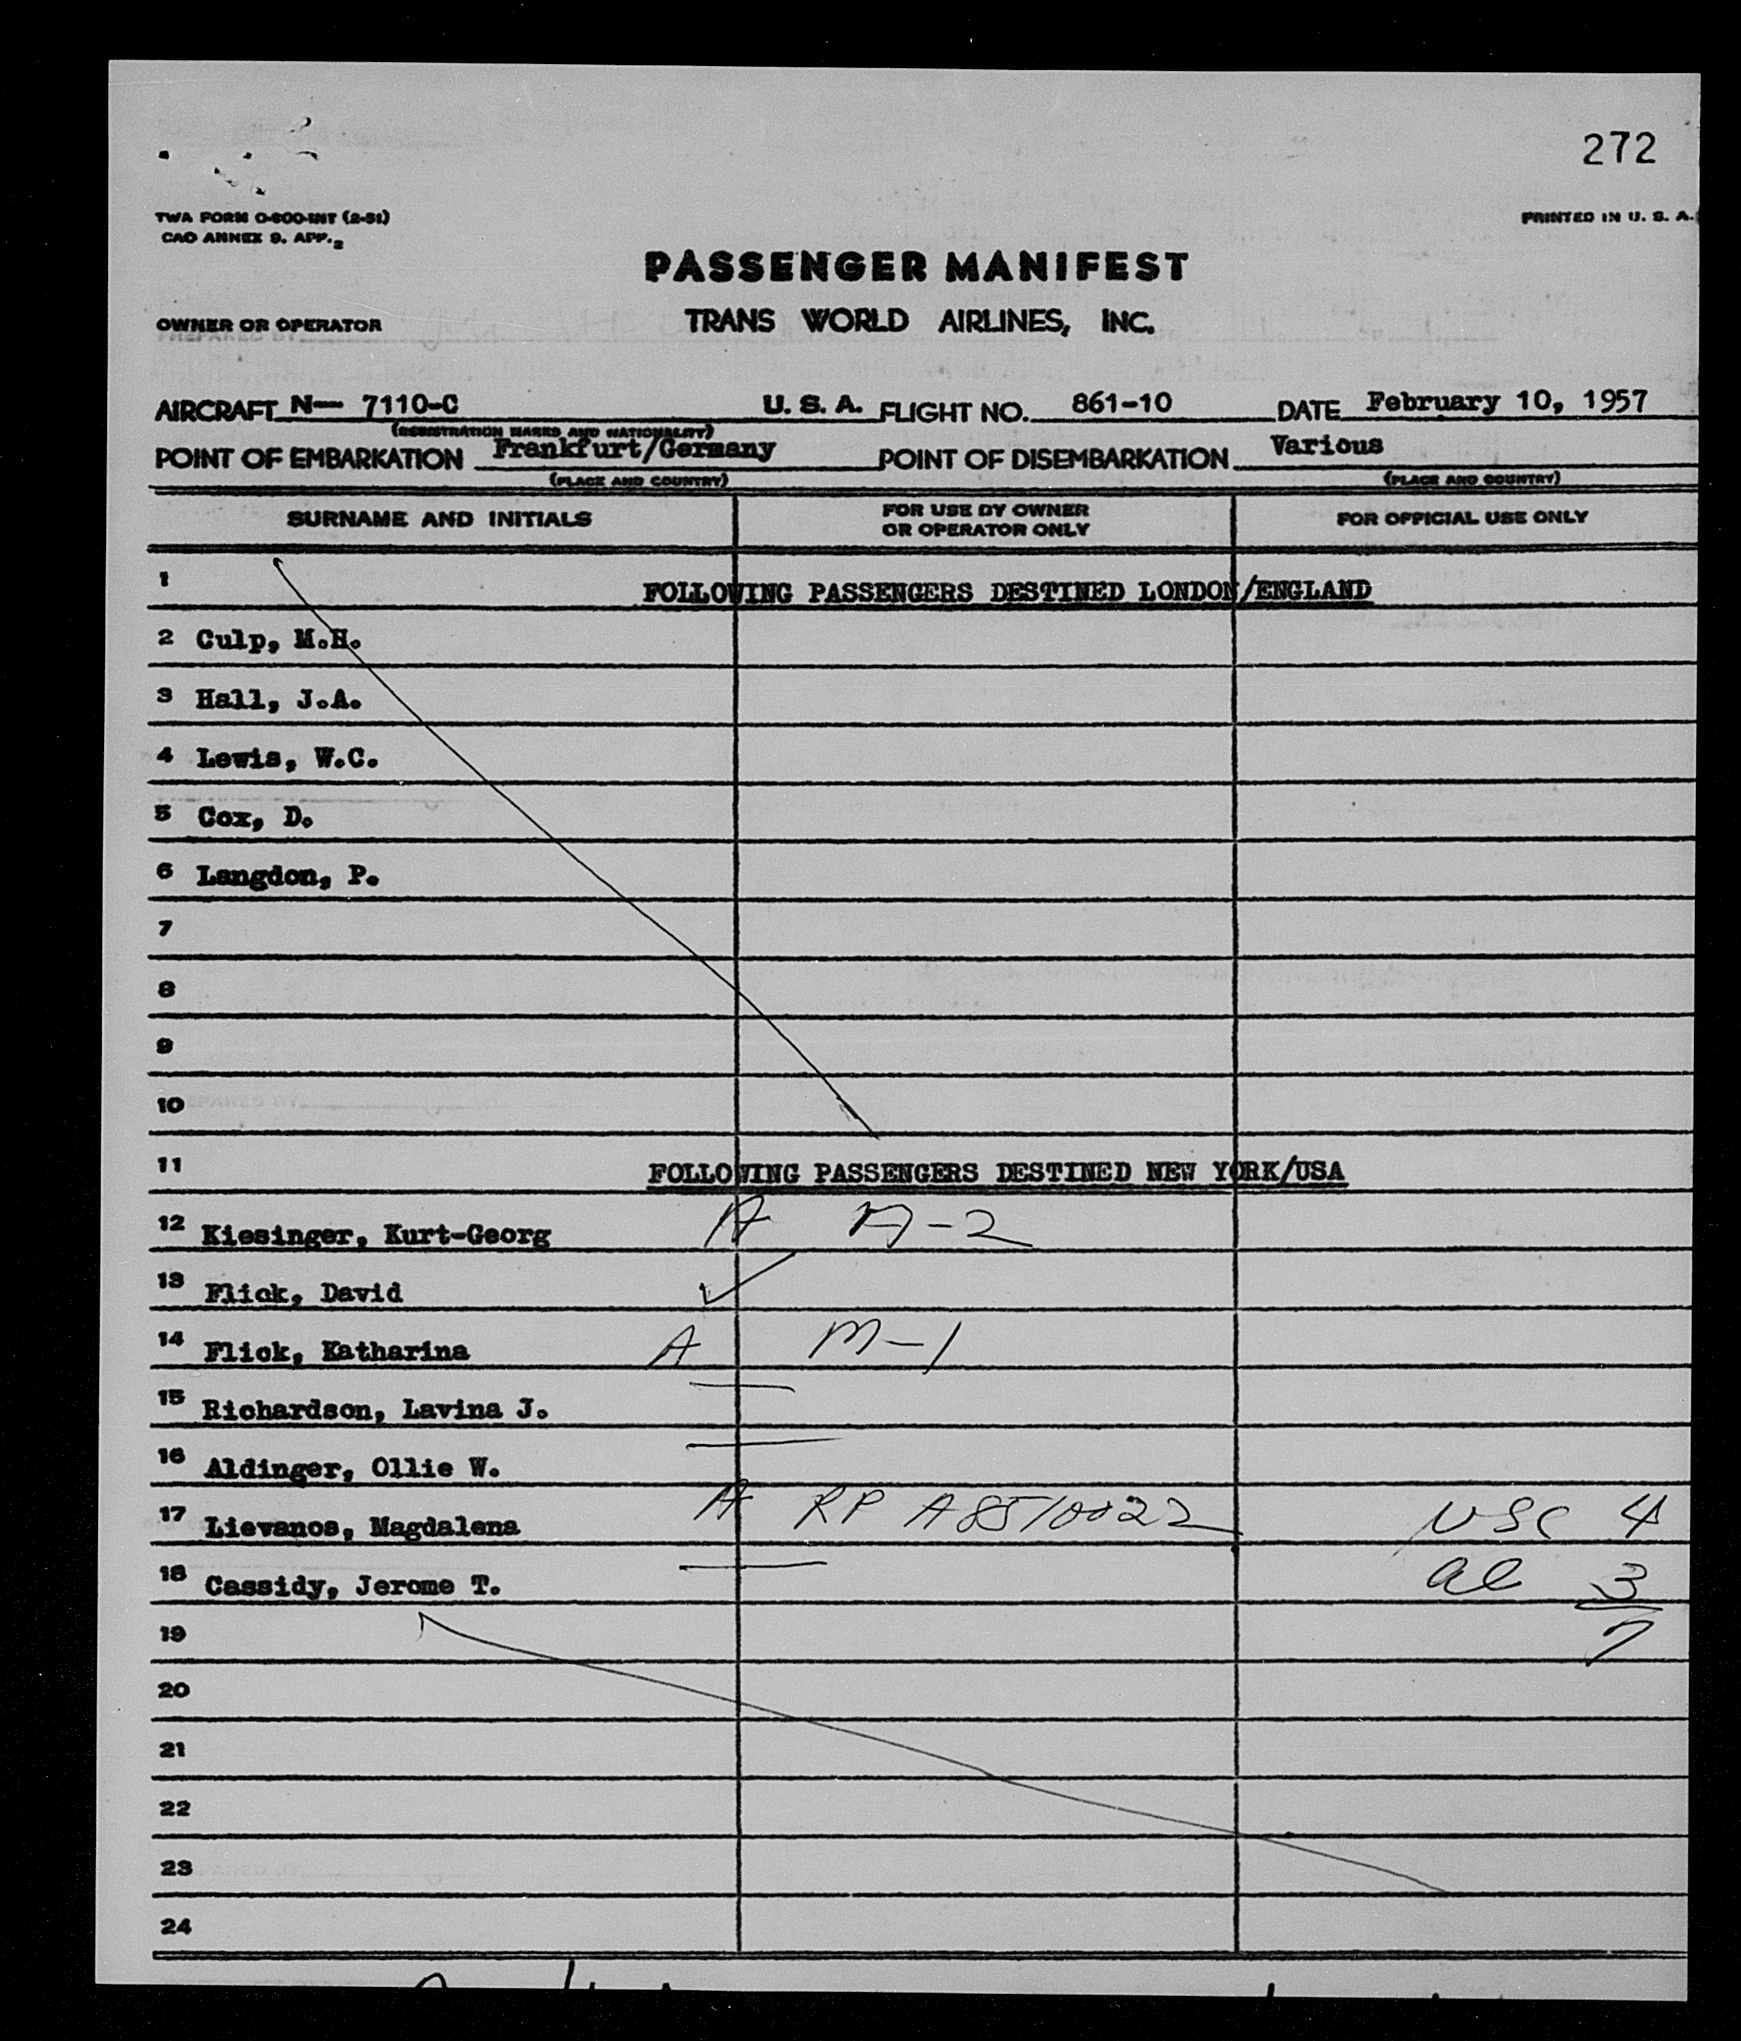 272
TWA FORM O-800-INT (2-51)
CAO ANNEX 9. APP. 2
PRINTED IN U. S. A.
PASSENGER MANIFEST
OWNER OR OPERATOR
TRANS WORLD AIRLINES, INC.
AIRCRAFT N— 7110-C U. S. A. FLIGHT NO. 861-10 DATE February 10, 1957
(REGISTRATION MARKS AND NATIONALITY)
POINT OF EMBARKATION Frankfurt/Germany POINT OF DISEMBARKATION Various
(PLACE AND COUNTRY) (PLACE AND COUNTRY)
SURNAME AND INITIALS FOR USE BY OWNER OR OPERATOR ONLY FOR OFFICIAL USE ONLY
1 FOLLOWING PASSENGERS DESTINED LONDON/ENGLAND
2 Culp, M.H.
3 Hall, J.A.
4 Lewis, W.C.
5 Cox, D.
6 Langdon, P.
7
8
9
10
11 FOLLOWING PASSENGERS DESTINED NEW YORK/USA
12 Kiesinger, Kurt-Georg A A-2
13 Flick, David ✓
14 Flick, Katharina A M-1
15 Richardson, Lavina J. —
16 Aldinger, Ollie W. —
17 Lievanos, Magdalena A RP A8510022 USC 4
18 Cassidy, Jerome T. — al 3
19 7
20
21
22
23
24